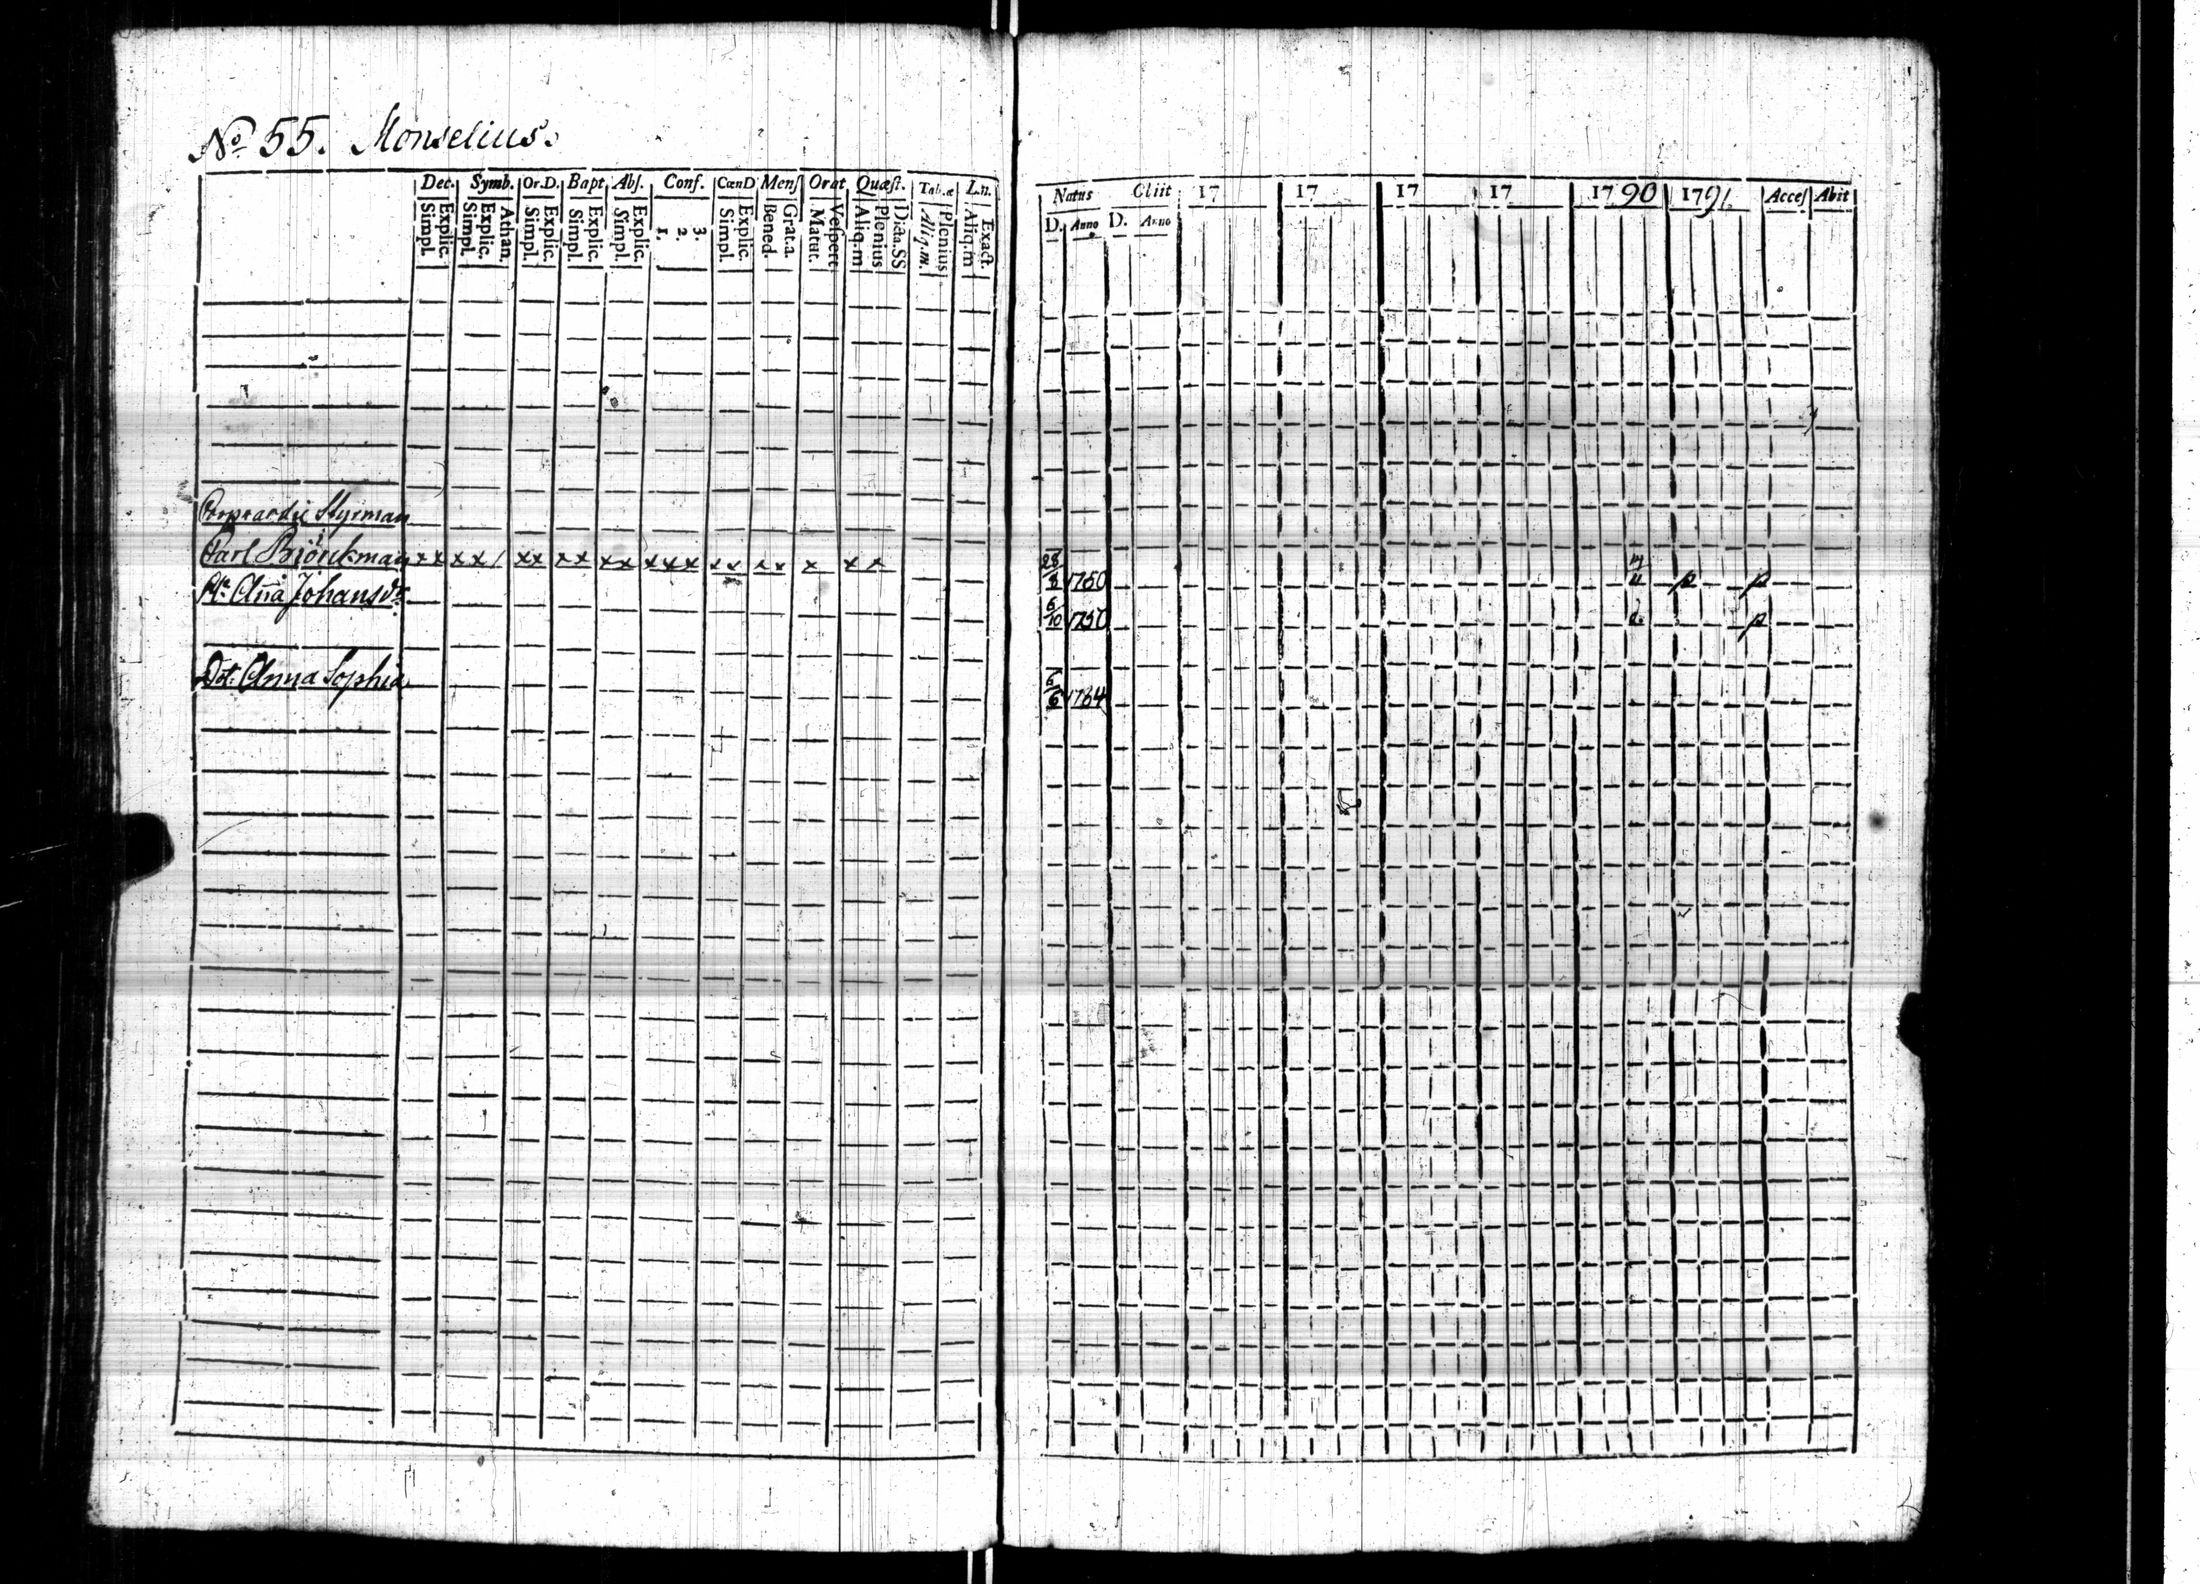 No 55. Monselius.
Dec. Symb. Or.D. Bapt Abs. Conf. CœnD Mens Orat Quæst. Tab.æ L.n.
Simpl. Explic. Simpl. Explic. Athan. Simpl. Explic. Simpl. Explic. Simpl. Explic. 1. 2. 3. Simpl. Explic. Bened. Grat.a. Matut. Vespert Aliq.m Plenius Dicta.SS Aliq.m. Plenius Aliq.m Exact.
Styrman
Carl Björckman x x x x / x x x x x x x x x x x x x x x x
Anna Johansdr
Dotr Anna Sophia
Natus Obiit 17 17 17 17 1790 1791 Acces Abit
D. Anno D. Anno
28/2 1750 p p
6/10 1750 p
6/6 1784